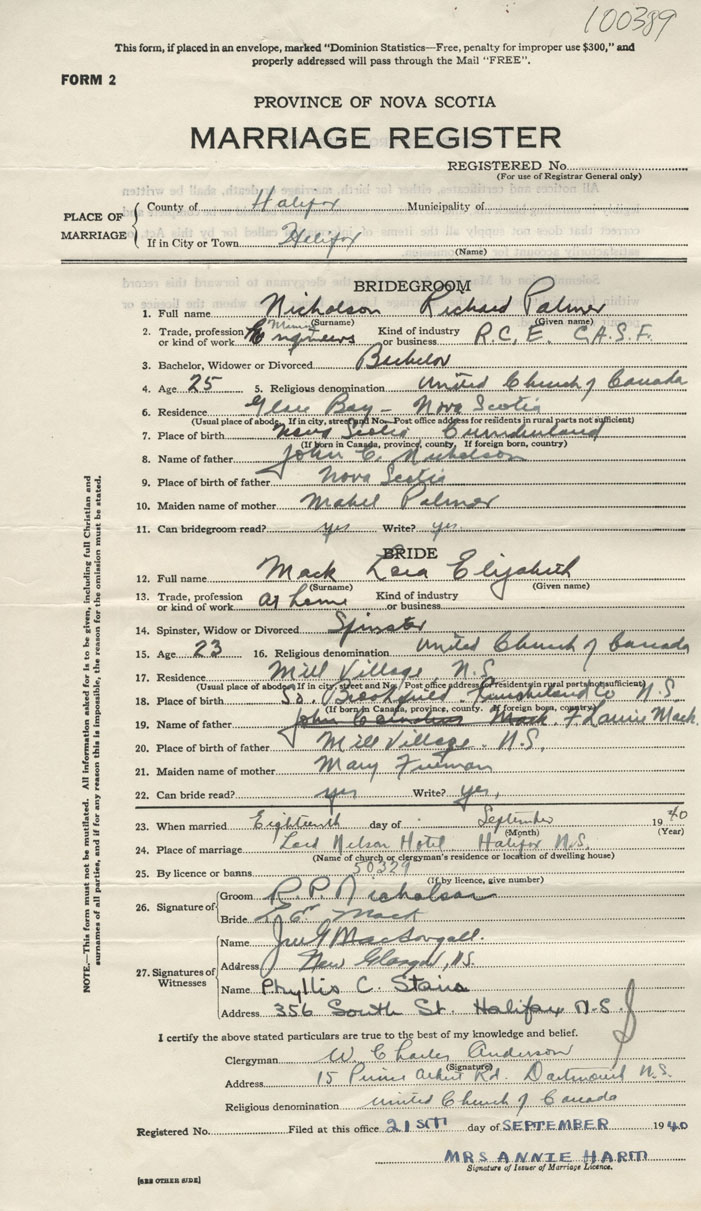 100389
This form, if placed in an envelope, marked "Dominion Statistics—Free, penalty for improper use $300," and
properly addressed will pass through the Mail "FREE".
FORM 2
PROVINCE OF NOVA SCOTIA
MARRIAGE REGISTER
REGISTERED No.
(For use of Registrar General only)
PLACE OF MARRIAGE
County of Halifax Municipality of
If in City or Town Halifax
(Name)
BRIDEGROOM
1. Full name Nicholson Richard Palmer
(Surname) (Given name)
2. Trade, profession or kind of work Engineers Kind of industry or business R.C.E. C.A.S.F.
3. Bachelor, Widower or Divorced Bachelor
4. Age 25 5. Religious denomination United Church of Canada
6. Residence Glace Bay - Nova Scotia
(Usual place of abode. If in city, street and No. Post office address for residents in rural parts not sufficient)
7. Place of birth Nova Scotia Cumberland
(If born in Canada, province, county. If foreign born, country)
8. Name of father John C. Nicholson
9. Place of birth of father Nova Scotia
10. Maiden name of mother Mabel Palmer
11. Can bridegroom read? yes Write? yes
BRIDE
12. Full name Mack Lora Elizabeth
(Surname) (Given name)
13. Trade, profession or kind of work at home Kind of industry or business
14. Spinster, Widow or Divorced Spinster
15. Age 23 16. Religious denomination United Church of Canada
17. Residence Mill Village, N.S.
(Usual place of abode. If in city, street and No. Post office address for residents in rural parts not sufficient)
18. Place of birth So. Brookfield N.S.
(If born in Canada, province, county. If foreign born, country)
19. Name of father John Mack F. Laurie Mack.
20. Place of birth of father Mill Village. N.S.
21. Maiden name of mother Mary Freeman
22. Can bride read? yes Write? yes,
23. When married Eighteenth day of September 1940
(Month) (Year)
24. Place of marriage Lord Nelson Hotel Halifax N.S.
(Name of church or clergyman's residence or location of dwelling house)
25. By licence or banns 50329
(If by licence, give number)
26. Signature of
Groom R.P. Nicholson
Bride Lora Mack
27. Signatures of Witnesses
Name MacDougall.
Address New Glasgow, N.S.
Name Phyllis C. Stairs
Address 356 South St. Halifax N.S.
I certify the above stated particulars are true to the best of my knowledge and belief.
Clergyman W. Charles Anderson
(Signature)
Address 15 Prince Albert Rd. Dartmouth N.S.
Religious denomination United Church of Canada
Registered No. Filed at this office 21ST day of SEPTEMBER 1940
MRS ANNIE HARM
Signature of Issuer of Marriage Licence.
[SEE OTHER SIDE]
NOTE.—This form must not be mutilated. All information asked for is to be given, including full Christian and
surnames of all parties, and if for any reason this is impossible, the reason for the omission must be stated.